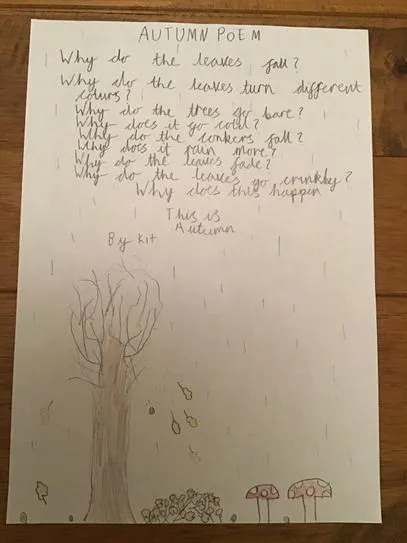 AUTUMN POEM
Why do the leaves fall?
Why do the leaves turn different
colurs?
Why do the trees go bare?
Why does it go cold?
Why do the conkers fall?
Why does it rain more?
Why do the leaves fade?
Why do the leaves go crinkly?
Why does this happen
This is
Autumn
By Kit